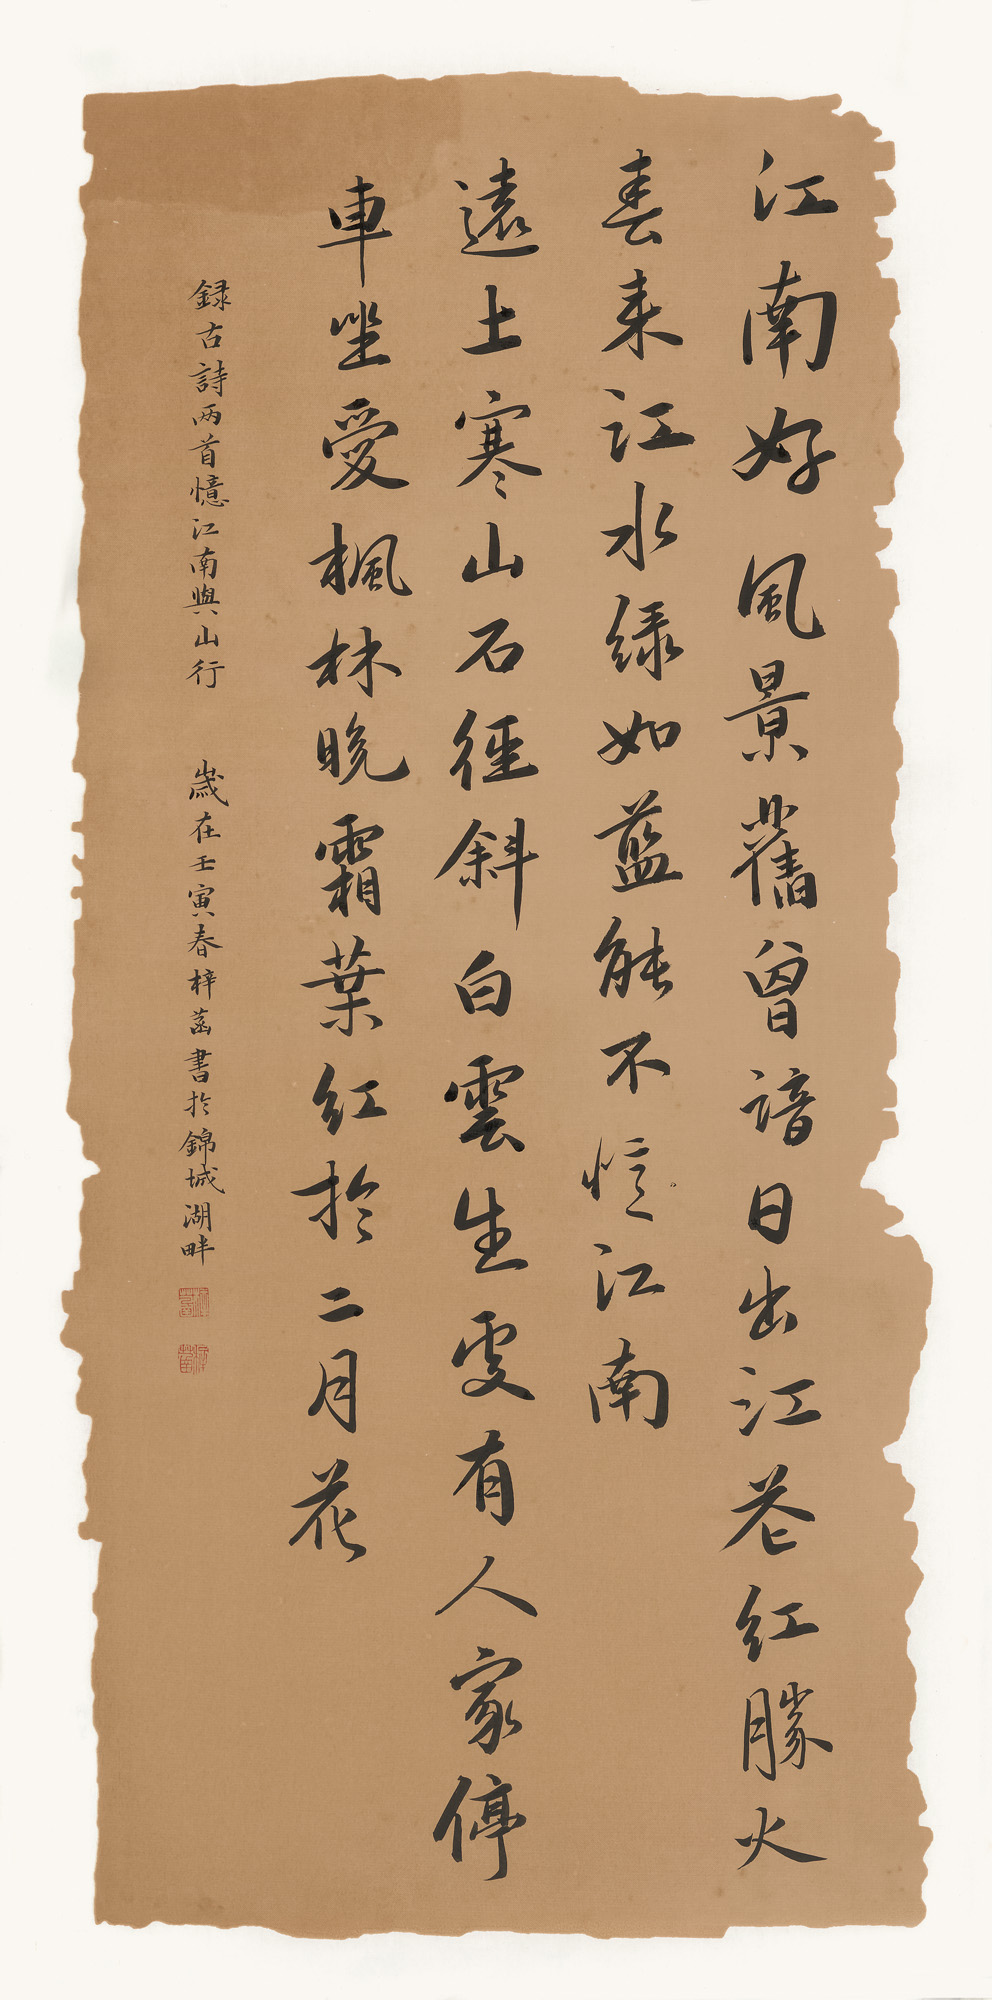 江南好風景舊曾諳日出江花紅勝火
春来江水緑如藍能不憶江南
遠上寒山石徑斜白雲生處有人家停
車坐愛楓林晚霜葉紅於二月花
録古詩两首憶江南與山行 歲在壬寅春梓菡書於錦城湖畔